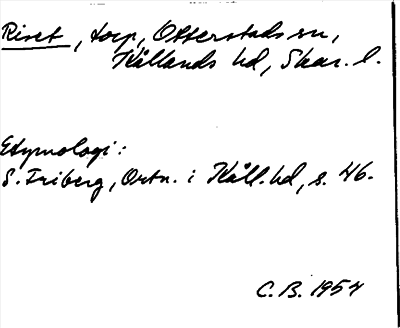 Riset, torp, Otterstads sn,
Kållands hd, Skar. l.
Etymologi:
S. Friberg, Ortn. i Kåll. hd, s. 46.
C. B. 1954